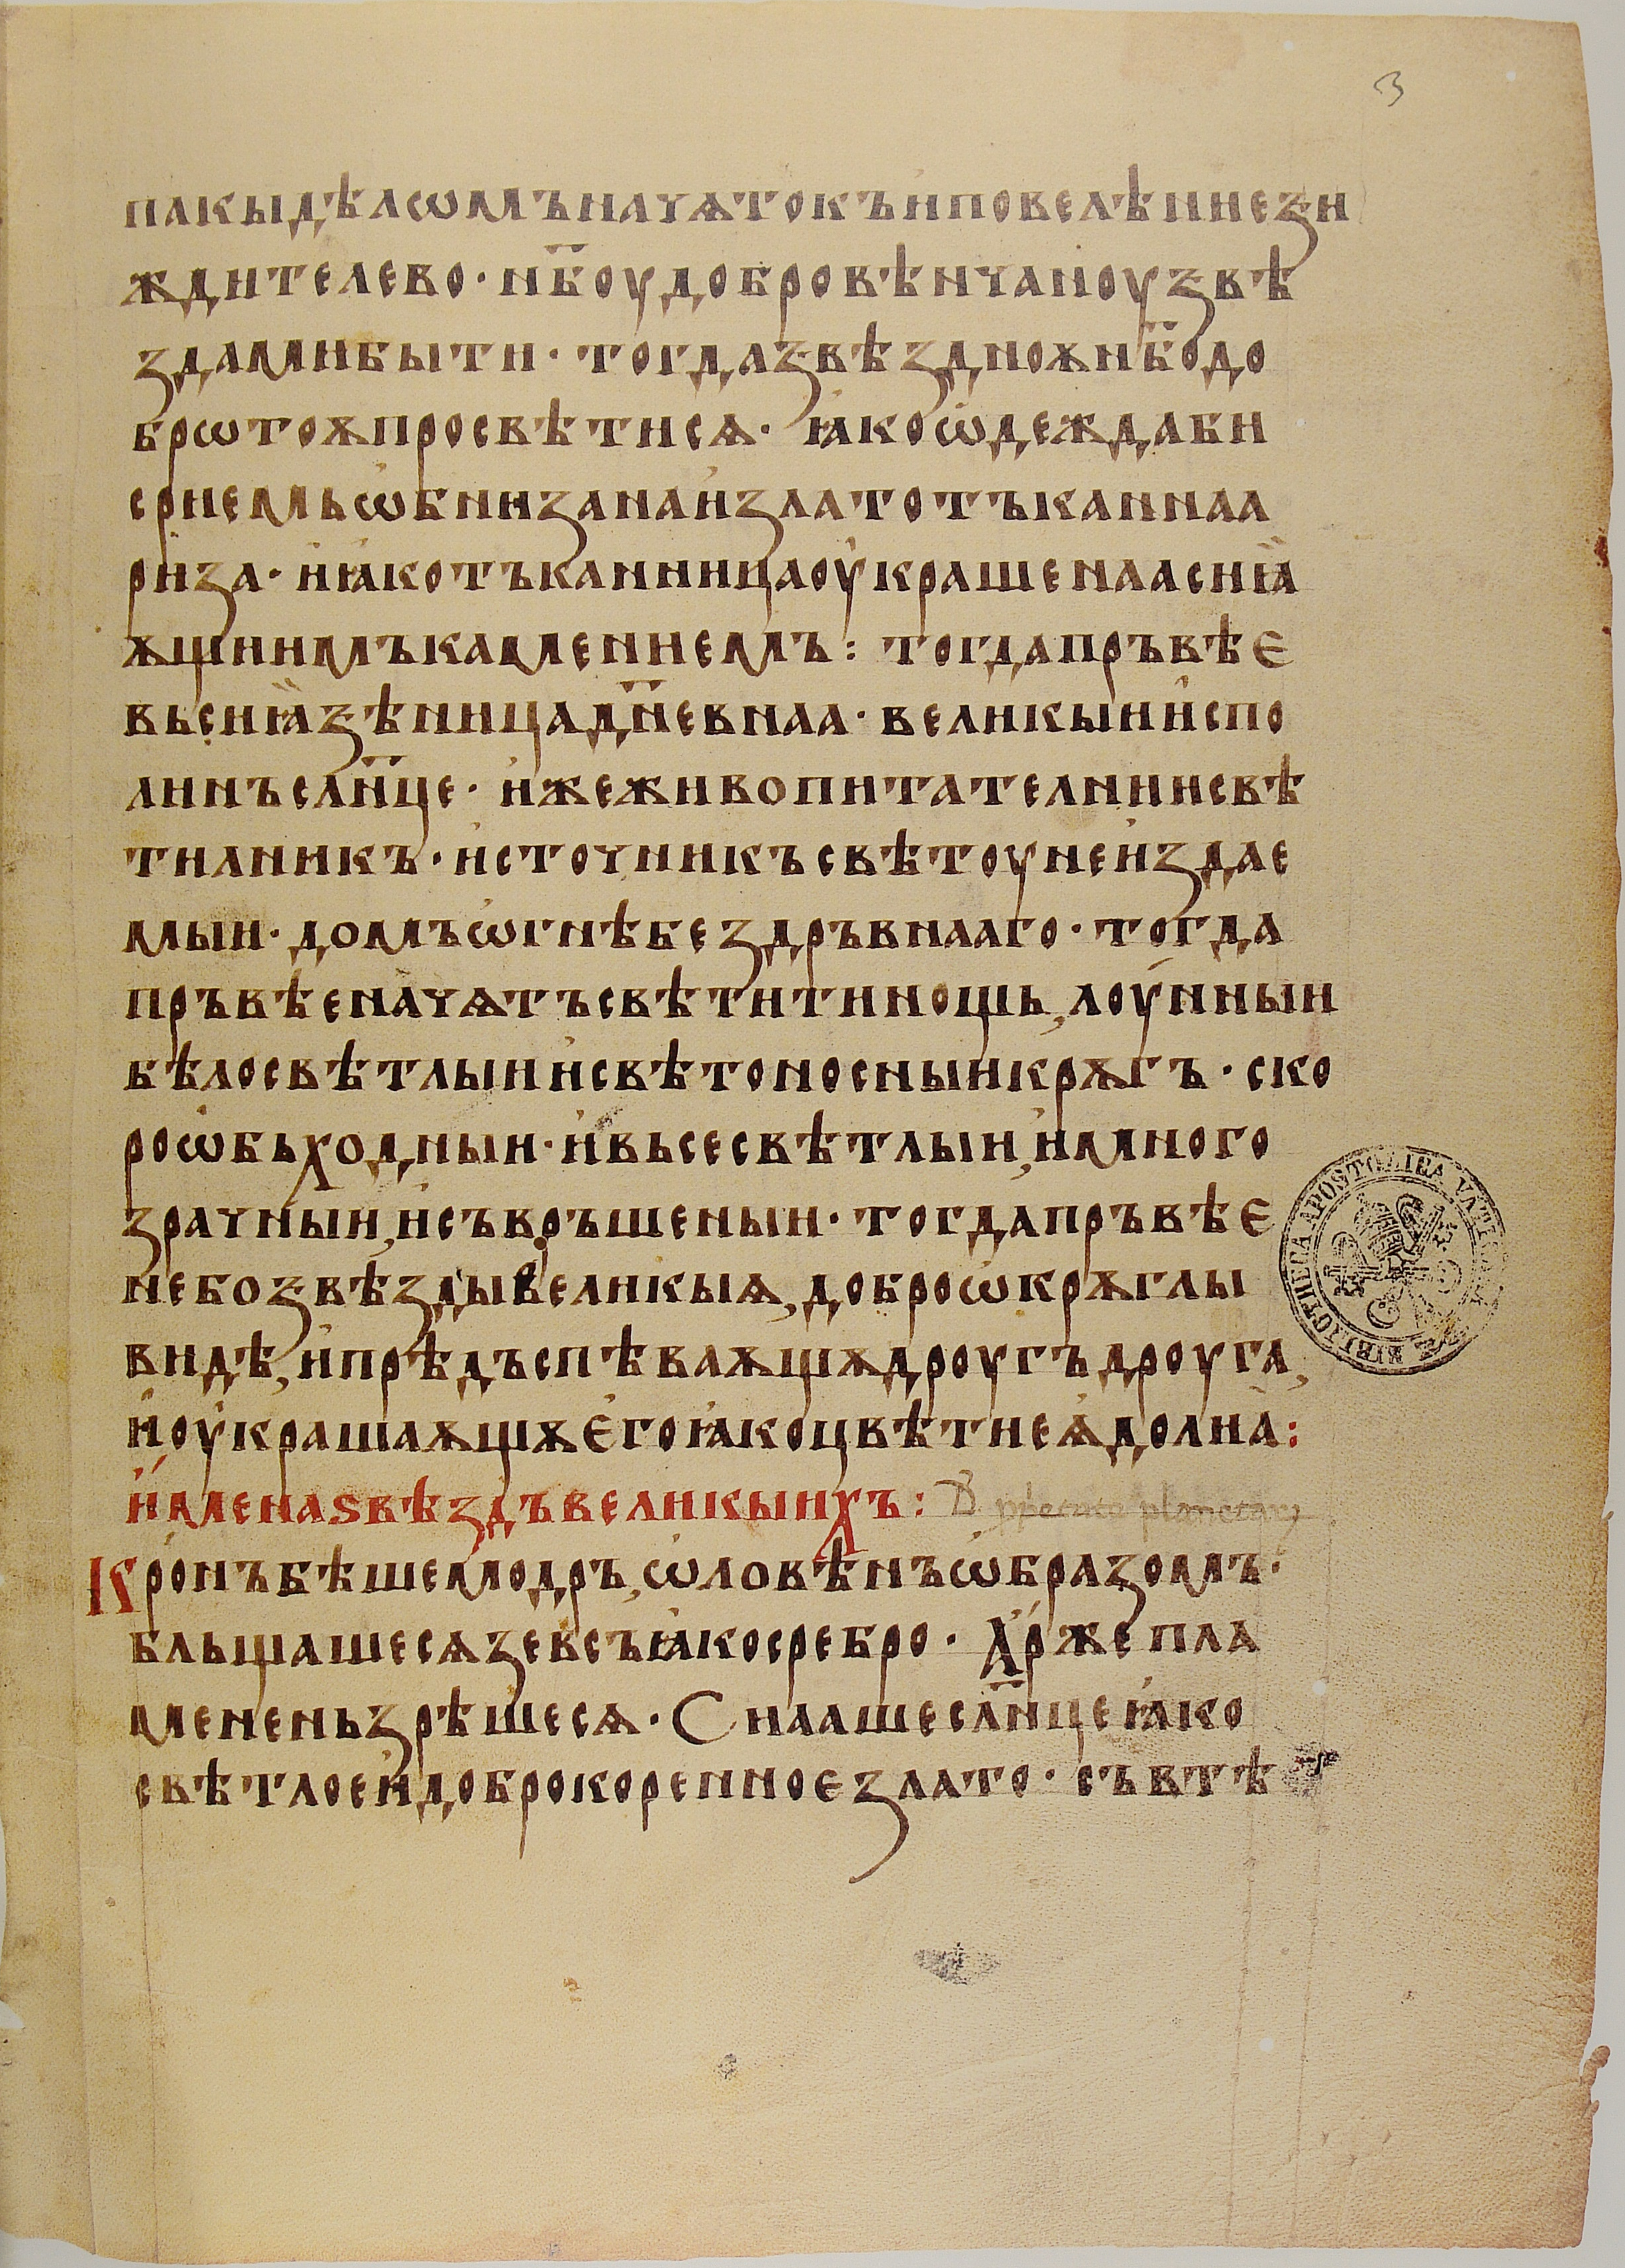 3
пакыдѣлѡмъначѧтокъиповелѣниези
ждителево · нб҃оудобровѣнчаноузвѣ
здамибыти · тогдазвѣзднѫѫнб҃одо
брѡтоѫпросвѣтисѧ · ꙗкоѡдеждаби
сриемьѡбнизанаизлатотъканнаа
риза · иꙗкотъканницаоукрашенаасиꙗ
ѫщиимъкамениемъ : тогдапръвѣє
вьсиꙗзѣницадн҃евнаа · великыииспо
линъслн҃це · ижеживопитателниисвѣ
тилникъ · источникъсвѣтоунеиздае
мыи · домъѡгнѣбездръвнааго · тогда
пръвѣеначѧтъсвѣтитинощь, лоунныи
бѣлосвѣтлыиисвѣтоносныикрѫгъ · ско
роѡбьходныи · ивьсесвѣтлыи, имного
зрачныи, исъвръшеныи · тогдапръвѣє
небозвѣздывеликыѧ, доброѡкрѫглы
видѣ, ипрѣдъспѣваѫщѫдроугъдроуга,
иоукрашаѫщѫєгоꙗкоцвѣтиеѧдолиа :
именаѕвѣздъвеликыихъ :
Кронъбѣшемодръ, ѡловѣнъѡбразомъ ·
бльщашесѧзевсъꙗкосребро · Аржепла
мененьзрѣшесѧ · Сиаашеслн҃цеꙗко
свѣтлоеидоброкоренноєзлато · съвтѣ
BIBLIOTHECA APOSTOLICA VATICANA